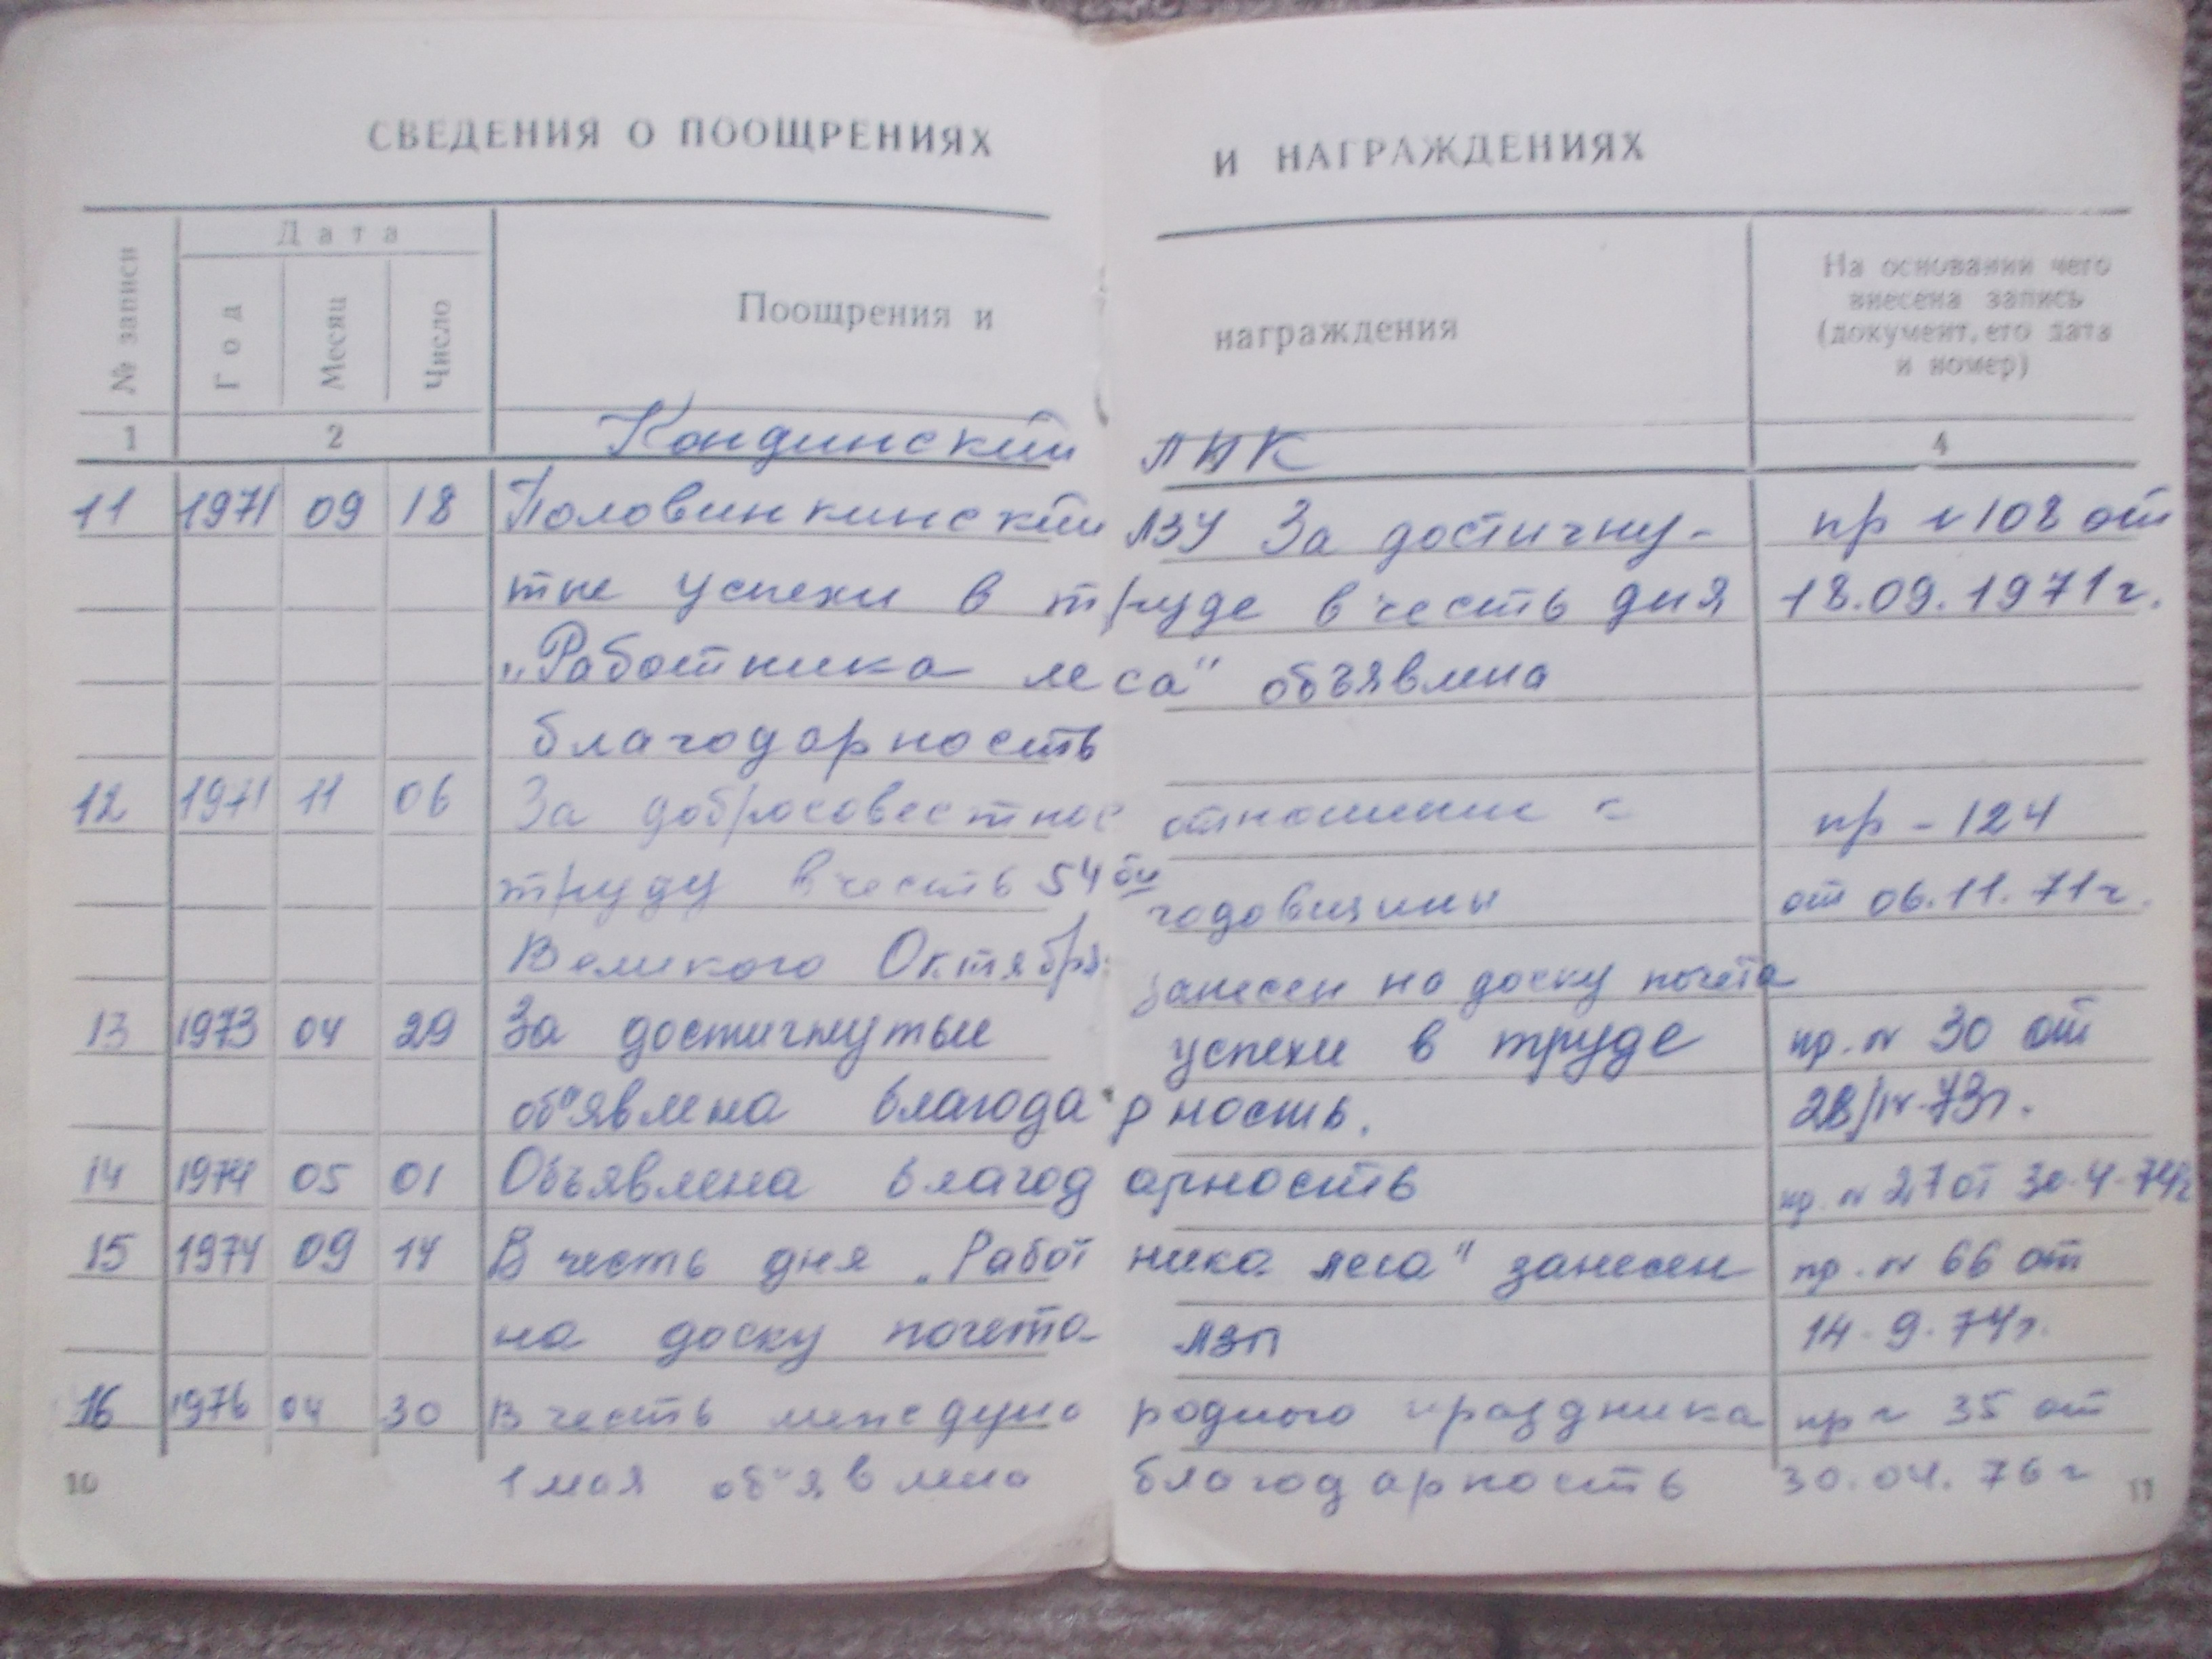 СВЕДЕНИЯ О ПООЩРЕНИЯХ И НАГРАЖДЕНИЯХ
№ записи
Дата
Год Месяц Число
Поощрения и награждения
На основании чего
внесена запись
(документ, его дата
и номер)
1 2 4
Кондинский ЛПК
11 1971 09 18 Половинкинский ЛЗУ За достигну- пр № 108 от
тые успехи в труде в честь дня 18.09.1971г.
„Работника леса" объявлена
благодарность
12 1971 11 06 За добросовестное отношение к пр - 124
труду в честь 54ой годовщины от 06.11.71г.
Великого Октября занесен на доску почета
13 1973 04 29 За достигнутые успехи в труде пр. № 30 от
об"явлена благодарность. 28/IV-73г.
14 1974 05 01 Объявлена благодарность пр. № 27 от 30-4-74г
15 1974 09 14 В честь дня „Работника леса" занесен пр. № 66 от
на доску почета ЛЗП 14-9-74г.
16 1976 04 30 В честь междунородного праздника пр № 35 от
1 мая об"явлена благодарность 30.04.76г
10 11